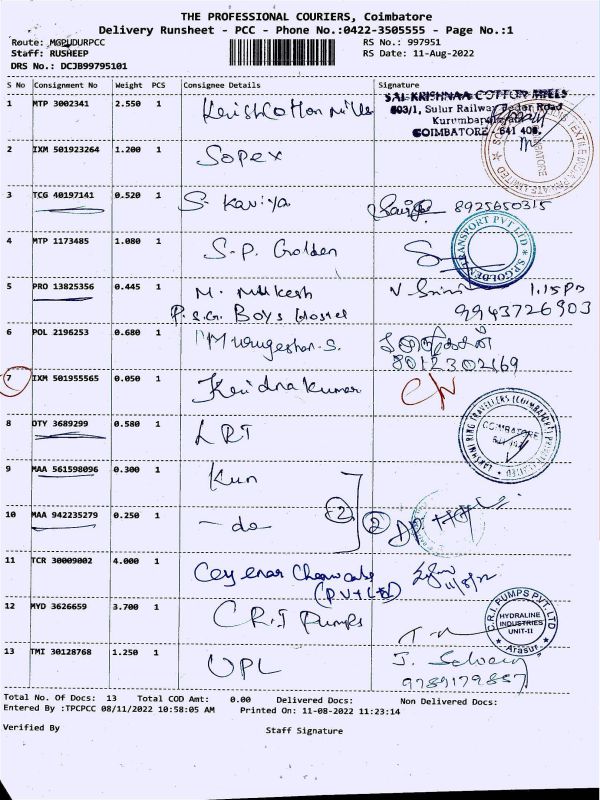 THE PROFESSIONAL COURIERS, Coimbatore
Delivery Runsheet - PCC - Phone No.:0422-3505555 - Page No.:1
Route: MGPUDURPCC RS No.: 997951
Staff: RUSHEEP RS Date: 11-Aug-2022
DRS No.: DCJB99795101
S No Consignment No Weight PCS Consignee Details Signature
SAI KRISHNAA COTTON MILLS
603/1, Sulur Railway Road
COIMBATORE - 641 401.
1 MTP 3002341 2.550 1 Cotton mills
2 IXM 501923264 1.200 1 Sopex
3 TCG 40197141 0.520 1 S. Kaviya 8925650315
4 MTP 1173485 1.080 1 S.P. Golden
TRANSPORT PVT LTD * S.P.GOLDEN
5 PRO 13825356 0.445 1 M. Mukesh 1.15 Pm
P.S.G. Boys Hostel 9943726903
6 POL 2196253 0.680 1 Murugeshan.S.
8012302169
7 IXM 501955565 0.050 1
8 DTY 3689299 0.580 1 LRT
LAKSHMI RING TRAVELLERS (COIMBATORE) PRIVATE LIMITED
COIMBATORE
9 MAA 561598096 0.300 1 Kun
10 MAA 942235279 0.250 1 - do
2 2
11 TCR 30009002 4.000 1 11/8/22
(PVT Ltd)
12 MYD 3626659 3.700 1 C.R.I Pumps
C.R.I. PUMPS PVT. LTD
HYDRALINE
INDUSTRIES
UNIT-II
Arasur.
13 TMI 30128768 1.250 1 UPL
9789179857
Total No. Of Docs: 13 Total COD Amt: 0.00 Delivered Docs: Non Delivered Docs:
Entered By :TPCPCC 08/11/2022 10:58:05 AM Printed On: 11-08-2022 11:23:14
Verified By Staff Signature